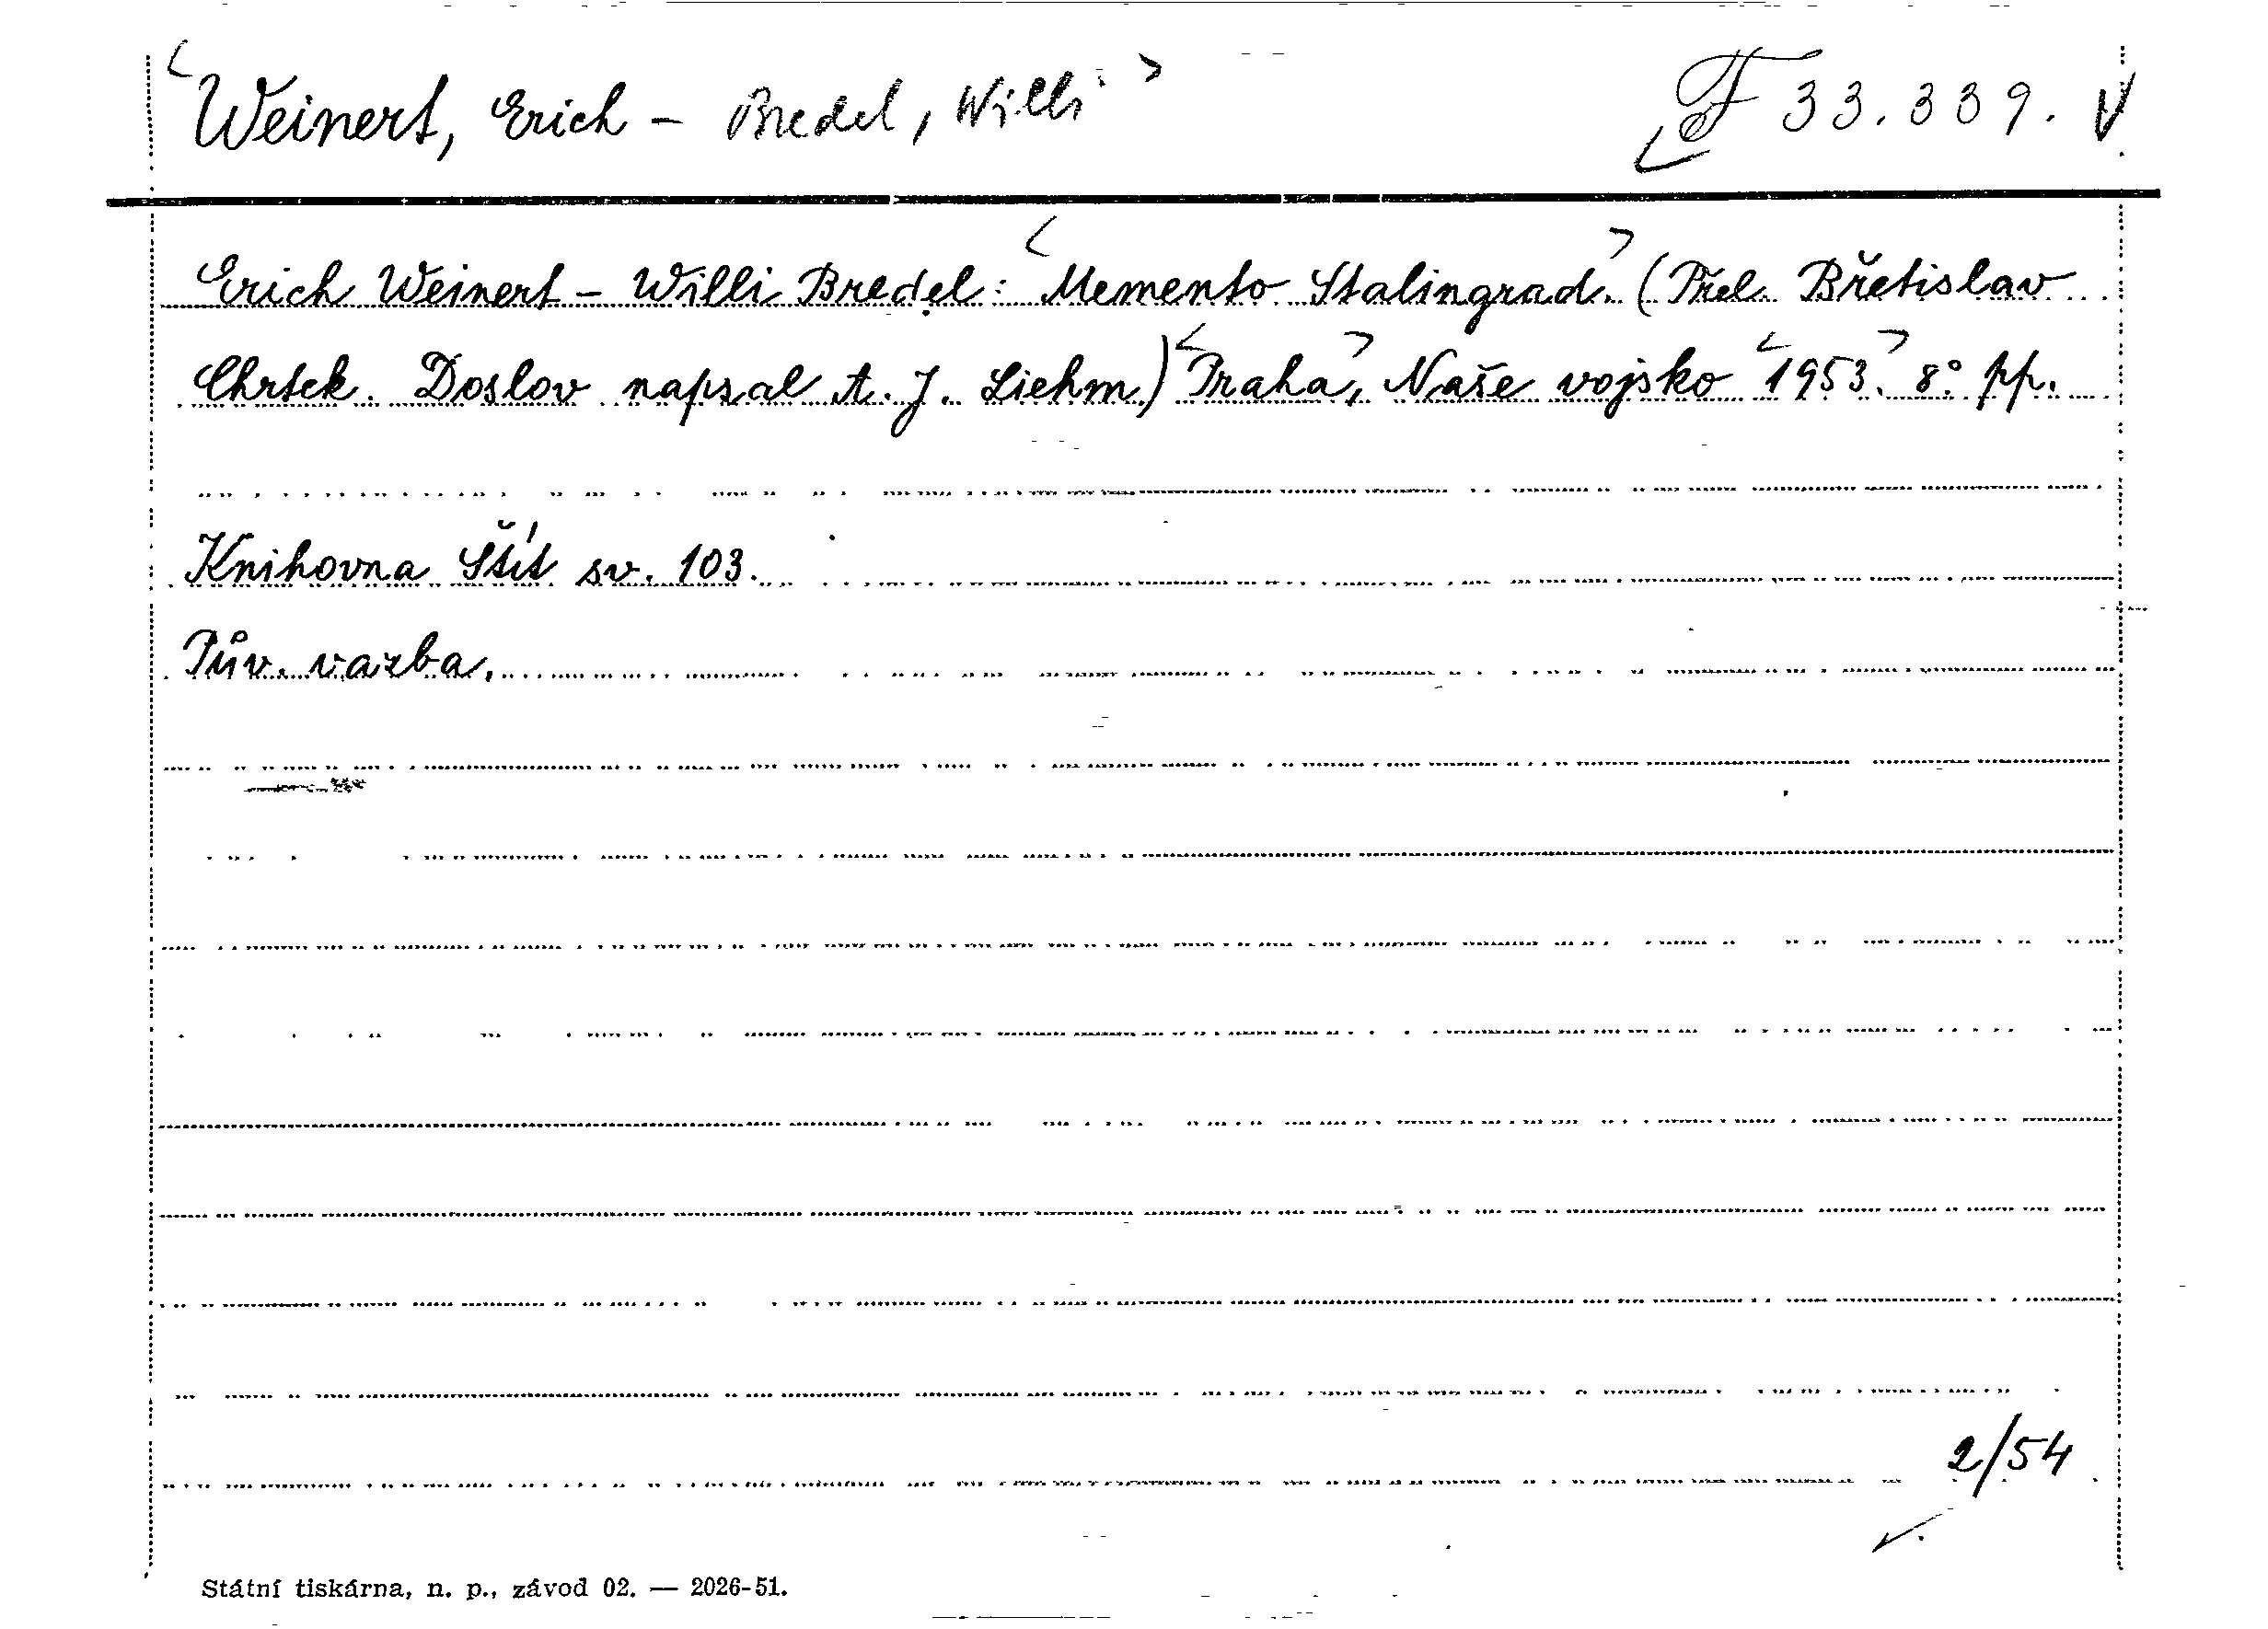 <Weinert, Erich - Bredel, Willi> F 33.339. V
Erich Weinert - Willi Bredel: <Memento Stalingrad.> (Přel. Břetislav
Chrtek. Doslov napsal A. J. Liehm.) <Praha>, Naše vojsko <1953.> 8° pp.
Knihovna Štít sv. 103.
Pův. vazba.
2/54
Státní tiskárna, n. p., závod 02. — 2026-51.